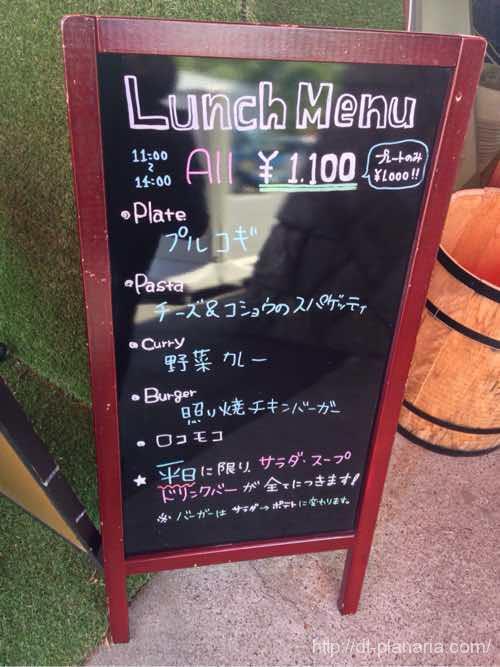 Lunch Menu
11:00
~
14:00
All ¥1.100
プレートのみ
¥1.000!!
Plate
プルコギ
Pasta
チーズ&コショウのスパゲッティ
Curry
野菜カレー
Burger
照り焼チキンバーガー
ロコモコ
★ 平日に限り、サラダ・スープ
ドリンクバーが全てにつきます!
※ バーガーは サラダ→ポテトに変わります。
http://df-planaria.com/